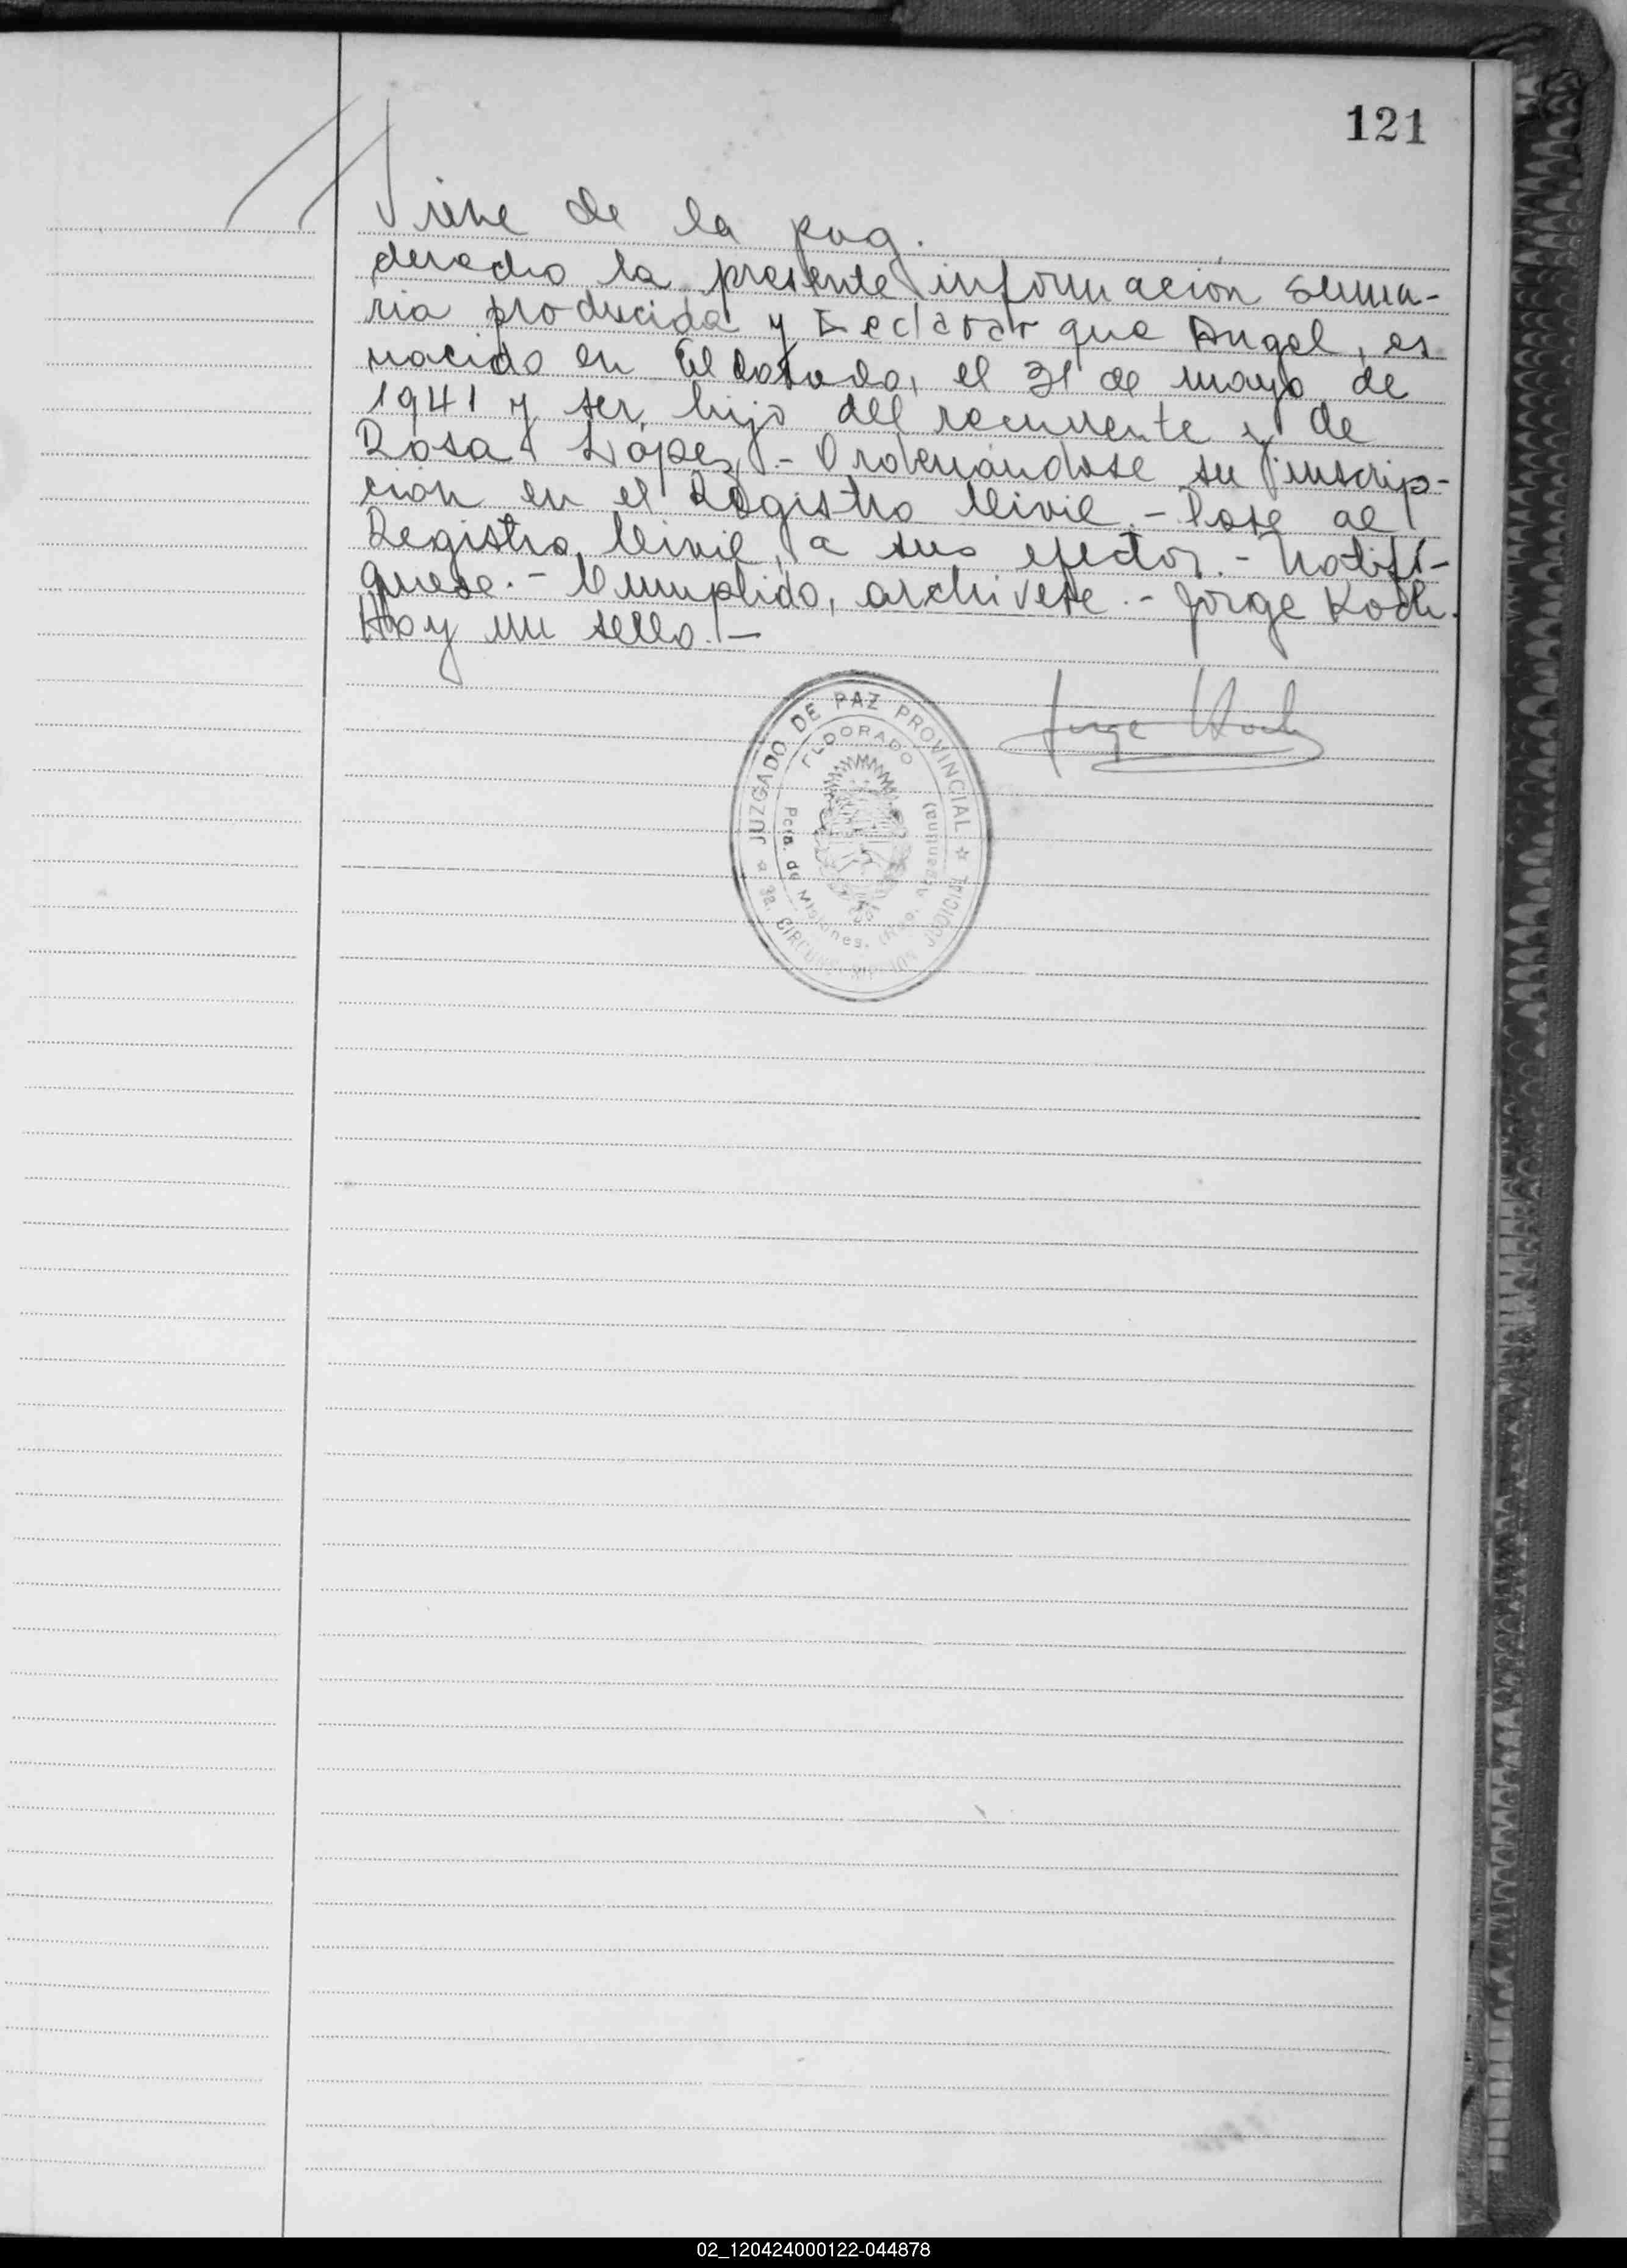 121
Viene de la pag.
derecho la presente información suma-
ria producida y Declarar que Angel, es
nacido en Eldorado, el 31 de mayo de
1941 y ser hijo del recurrente y de
Rosa López.- Ordenándose su inscrip-
ción en el Registro Civil.- Pase al
Registro Civil, a sus efectos.- Notifí-
quese.- Cumplido, archívese.- Jorge Koch.
Hay un sello.-
Jorge Koch
JUZGADO DE PAZ PROVINCIAL
ELDORADO
Pcia. de Misiones. (Rep. Argentina)
3a. CIRCUNSCRIPCION JUDICIAL
02_120424000122-044878